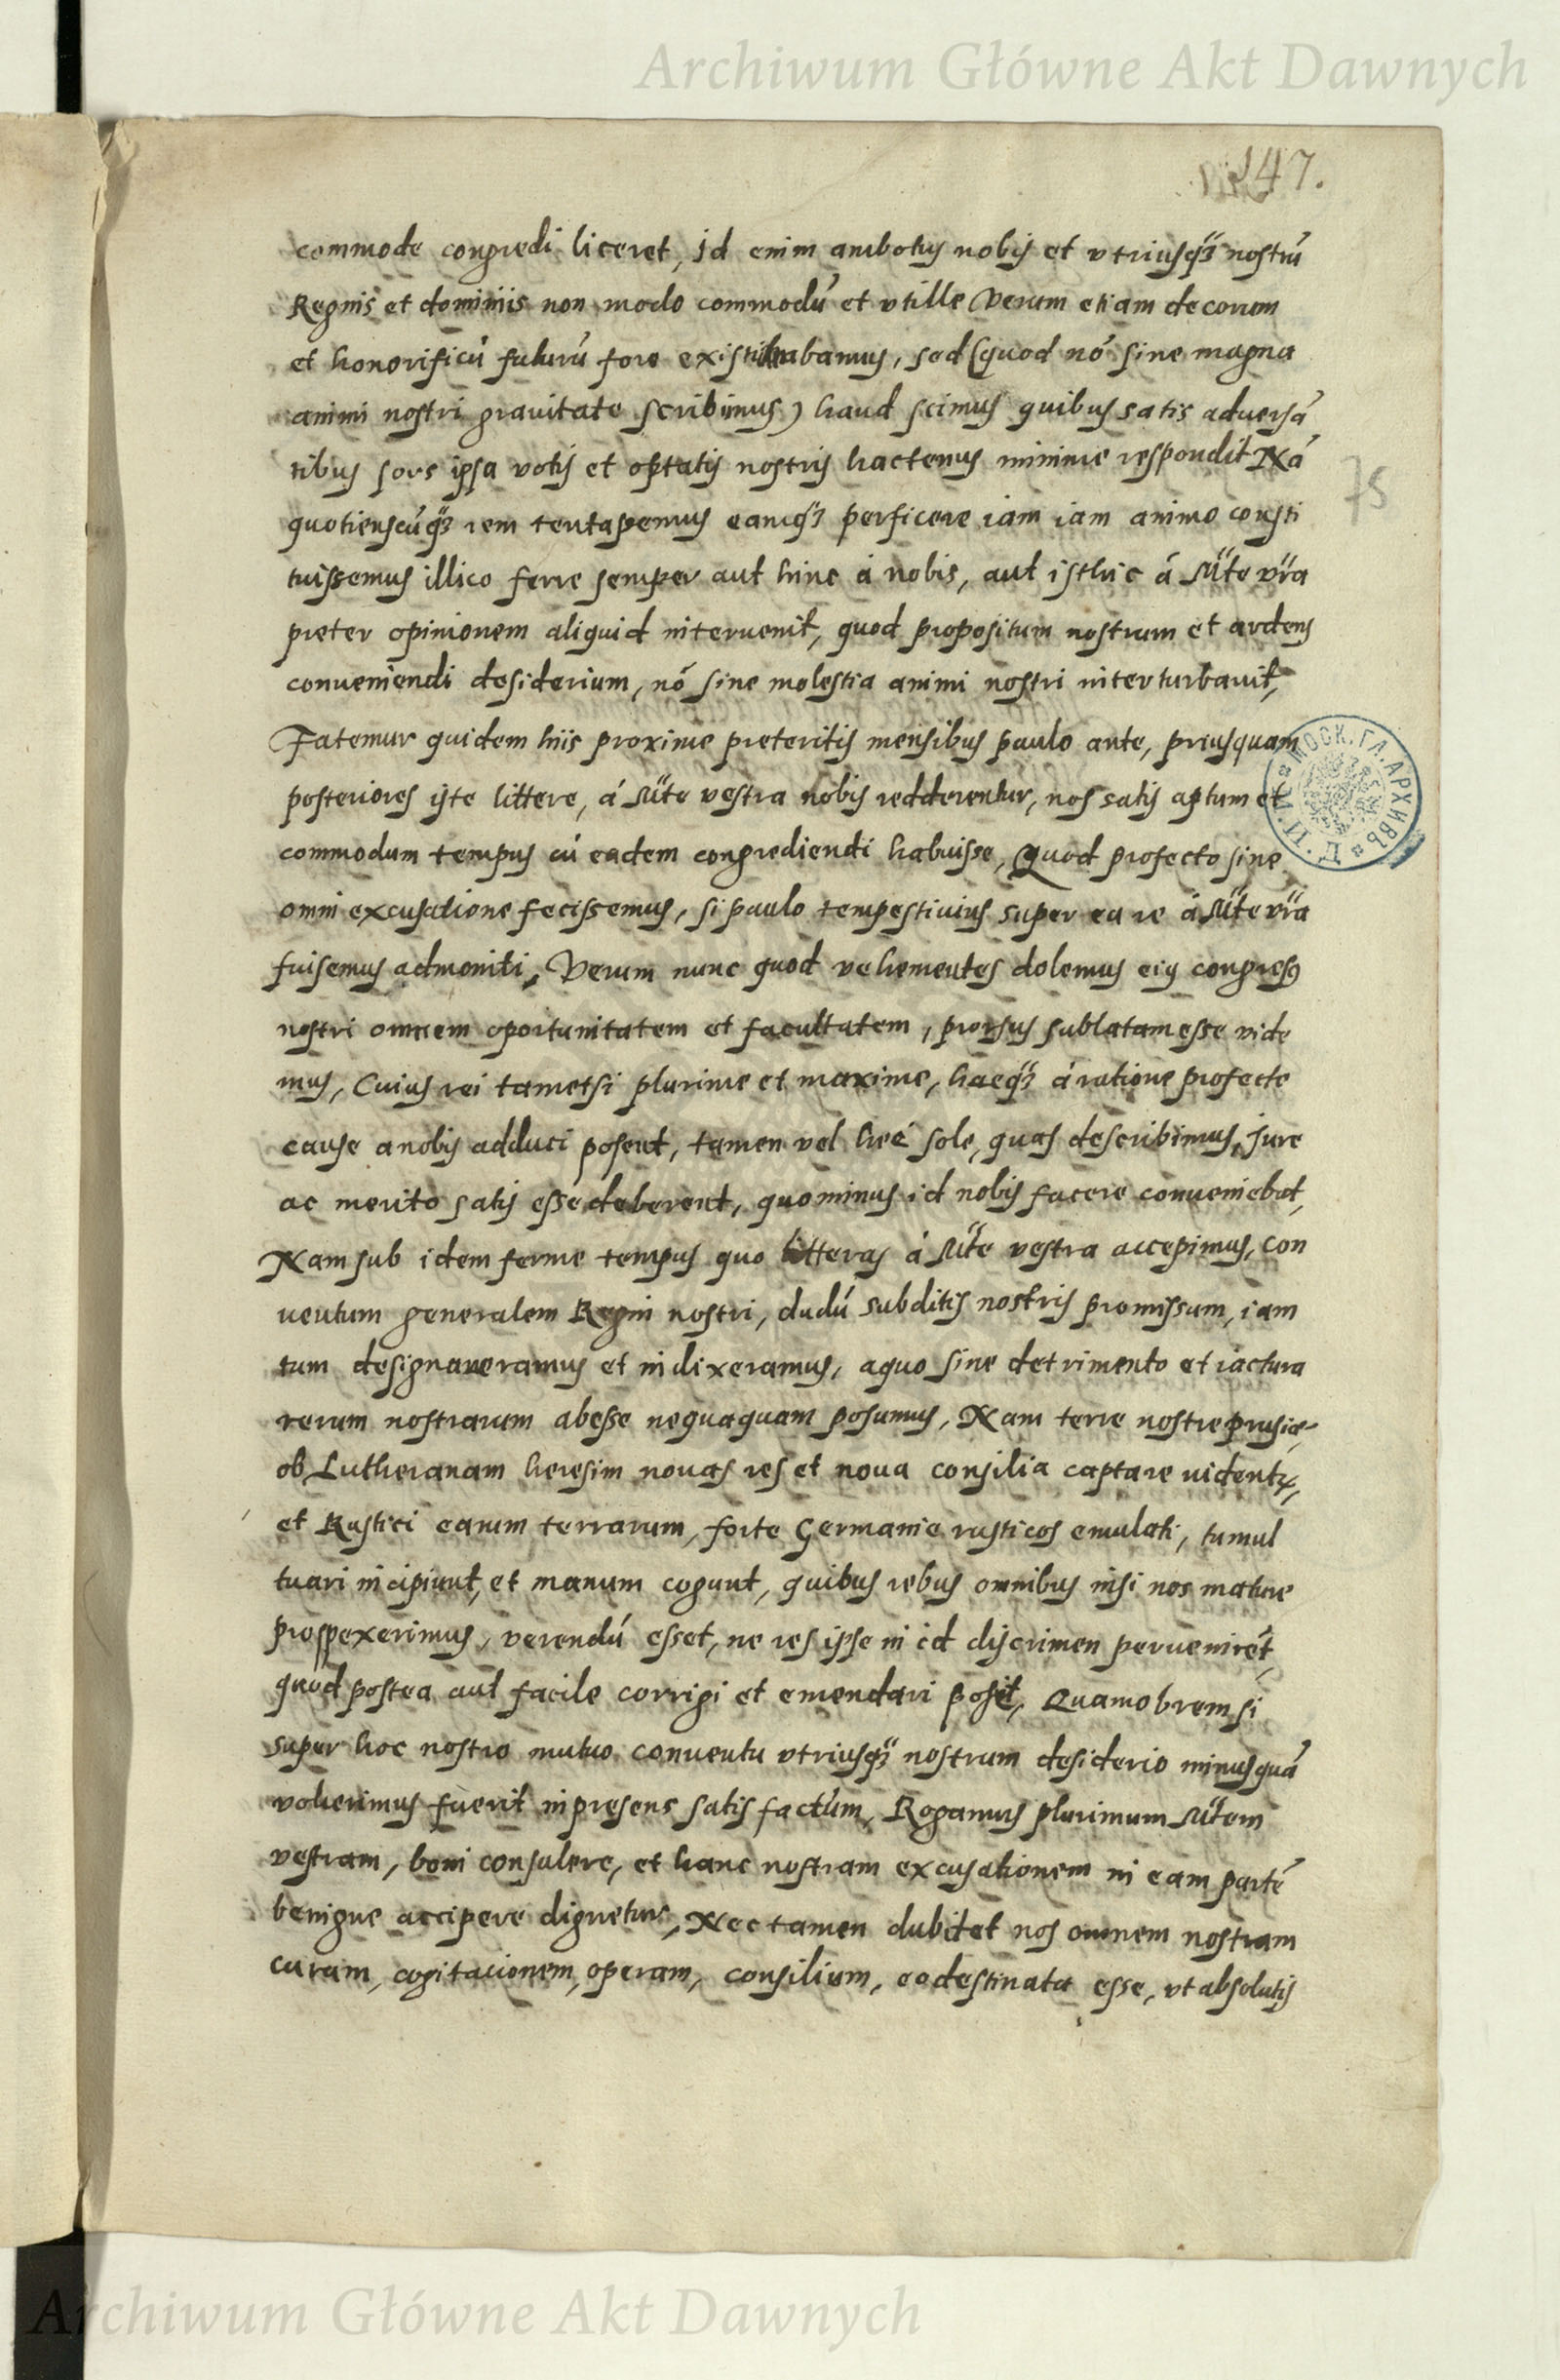 Archiwum Główne Akt Dawnych
147.
commode congredi liceret, Id enim ambobus nobis et vtriusq3 nostrū
Regnis et dominiis non modo commodū et vtille Verum etiam decorum
et honorificū futurū fore existimabamus, sed (quod nō sine magna
animi nostri grauitate scribimus) haud scimus quibus satis aduersā
tibus sors ipsa votis et optatis nostris hactenus minime respondit Nā
75
quotienscūq3 rem tentassemus eamq3 perficere iam iam animo consti
tuissemus illico ferre semper aut hinc á nobis, aut isthic á Sūte vr̄a
preter opinionem aliquid interuenit, quod propositum nostrum et ardens
conueniendi desiderium, nō sine molestia animi nostri interturbauit,
Fatemur quidem hiis proxime preteritis mensibus paulo ante, priusquam
posteriores iste littere, á Sūte vestra nobis redderentur, nos satis aptum et
commodum tempus cū eadem congrediendi habuisse, Quod profecto sine
omni excusatione fecissemus, si paulo tempestiuius super ea re á Sūte vr̄a
fuisemus admoniti, Verum nunc quod vehementes dolemus eius congress9
nostri omnem oportunitatem et facultatem, prorsus sublatam esse vide
mus, Cuius rei tametsi plurime et maxime, haeq3 á ratione profecte
cause a nobis adduci posent, tamen vel hee sole, quas describimus, jure
ac merito satis esse deberent, quominus id nobis facere conueniebat,
Nam sub idem ferme tempus quo litteras á Sūte vestra accepimus, con
uentum generalem Regni nostri, dudū subditis nostris promissum, iam
tum designaueramus et indixeramus, aquo sine detrimento et iactura
rerum nostrarum abesse nequaquam posumus, Nam terre nostre prusie,
ob Lutheranam heresim nouas res et noua consilia captare videntr,
et Rustici earum terrarum, forte Germanie rusticos emulati, tumul
tuari incipiunt, et manum cogunt, quibus rebus omnibus nisi nos mature
prospexerimus, verendū esset, ne res ipse in id discrimen peruenirēt,
quod postea aut facile corrigi et emendari posit, Quamobrem si
super hoc nostro mutuo conuentu vtriusq3 nostrum desiderio minusquā
voluerimus fuerit inpresens satis factum, Rogamus plurimum Sūtem
vestram, boni consulere, et hanc nostram excusationem in eam partē
benigne accipere dignetur, Nec tamen dubitet nos omnem nostram
curam, cogitacionem, operam, consilium, eo destinata esse, vt absolutis
Archiwum Główne Akt Dawnych